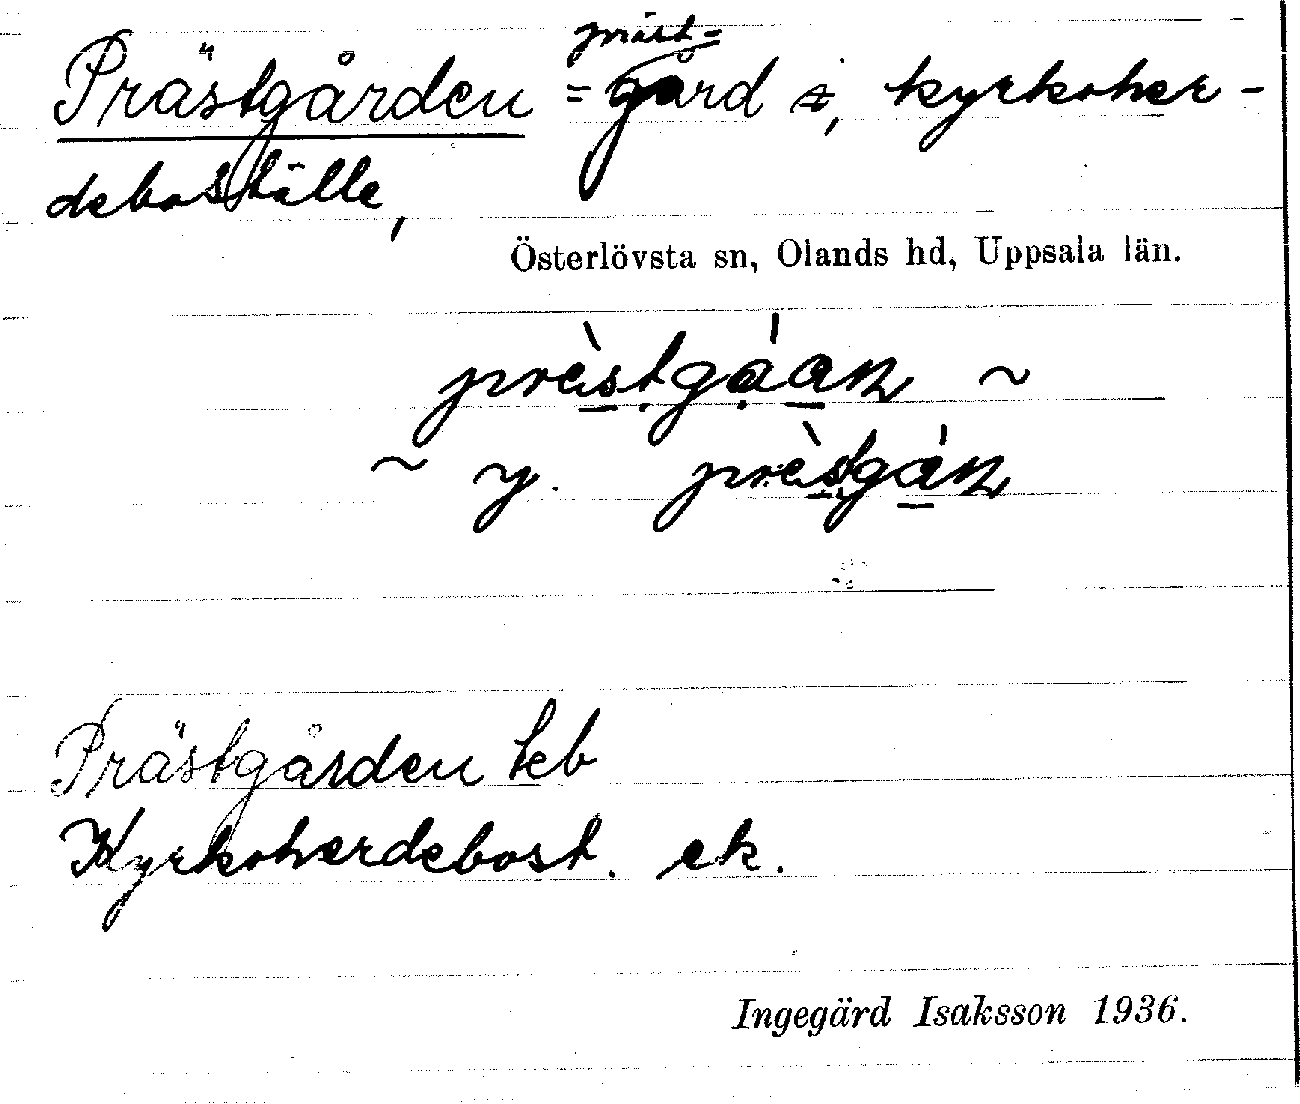 Prästgården = präst-gård i, kyrkoher-
deboställe,
Österlövsta sn, Olands hd, Uppsala län.
prè̱stgå̀a̱n ~
~ y. prè̱stgà̱n
Prästgården keb
Kyrkoherdebost. ek.
Ingegärd Isaksson 1936.